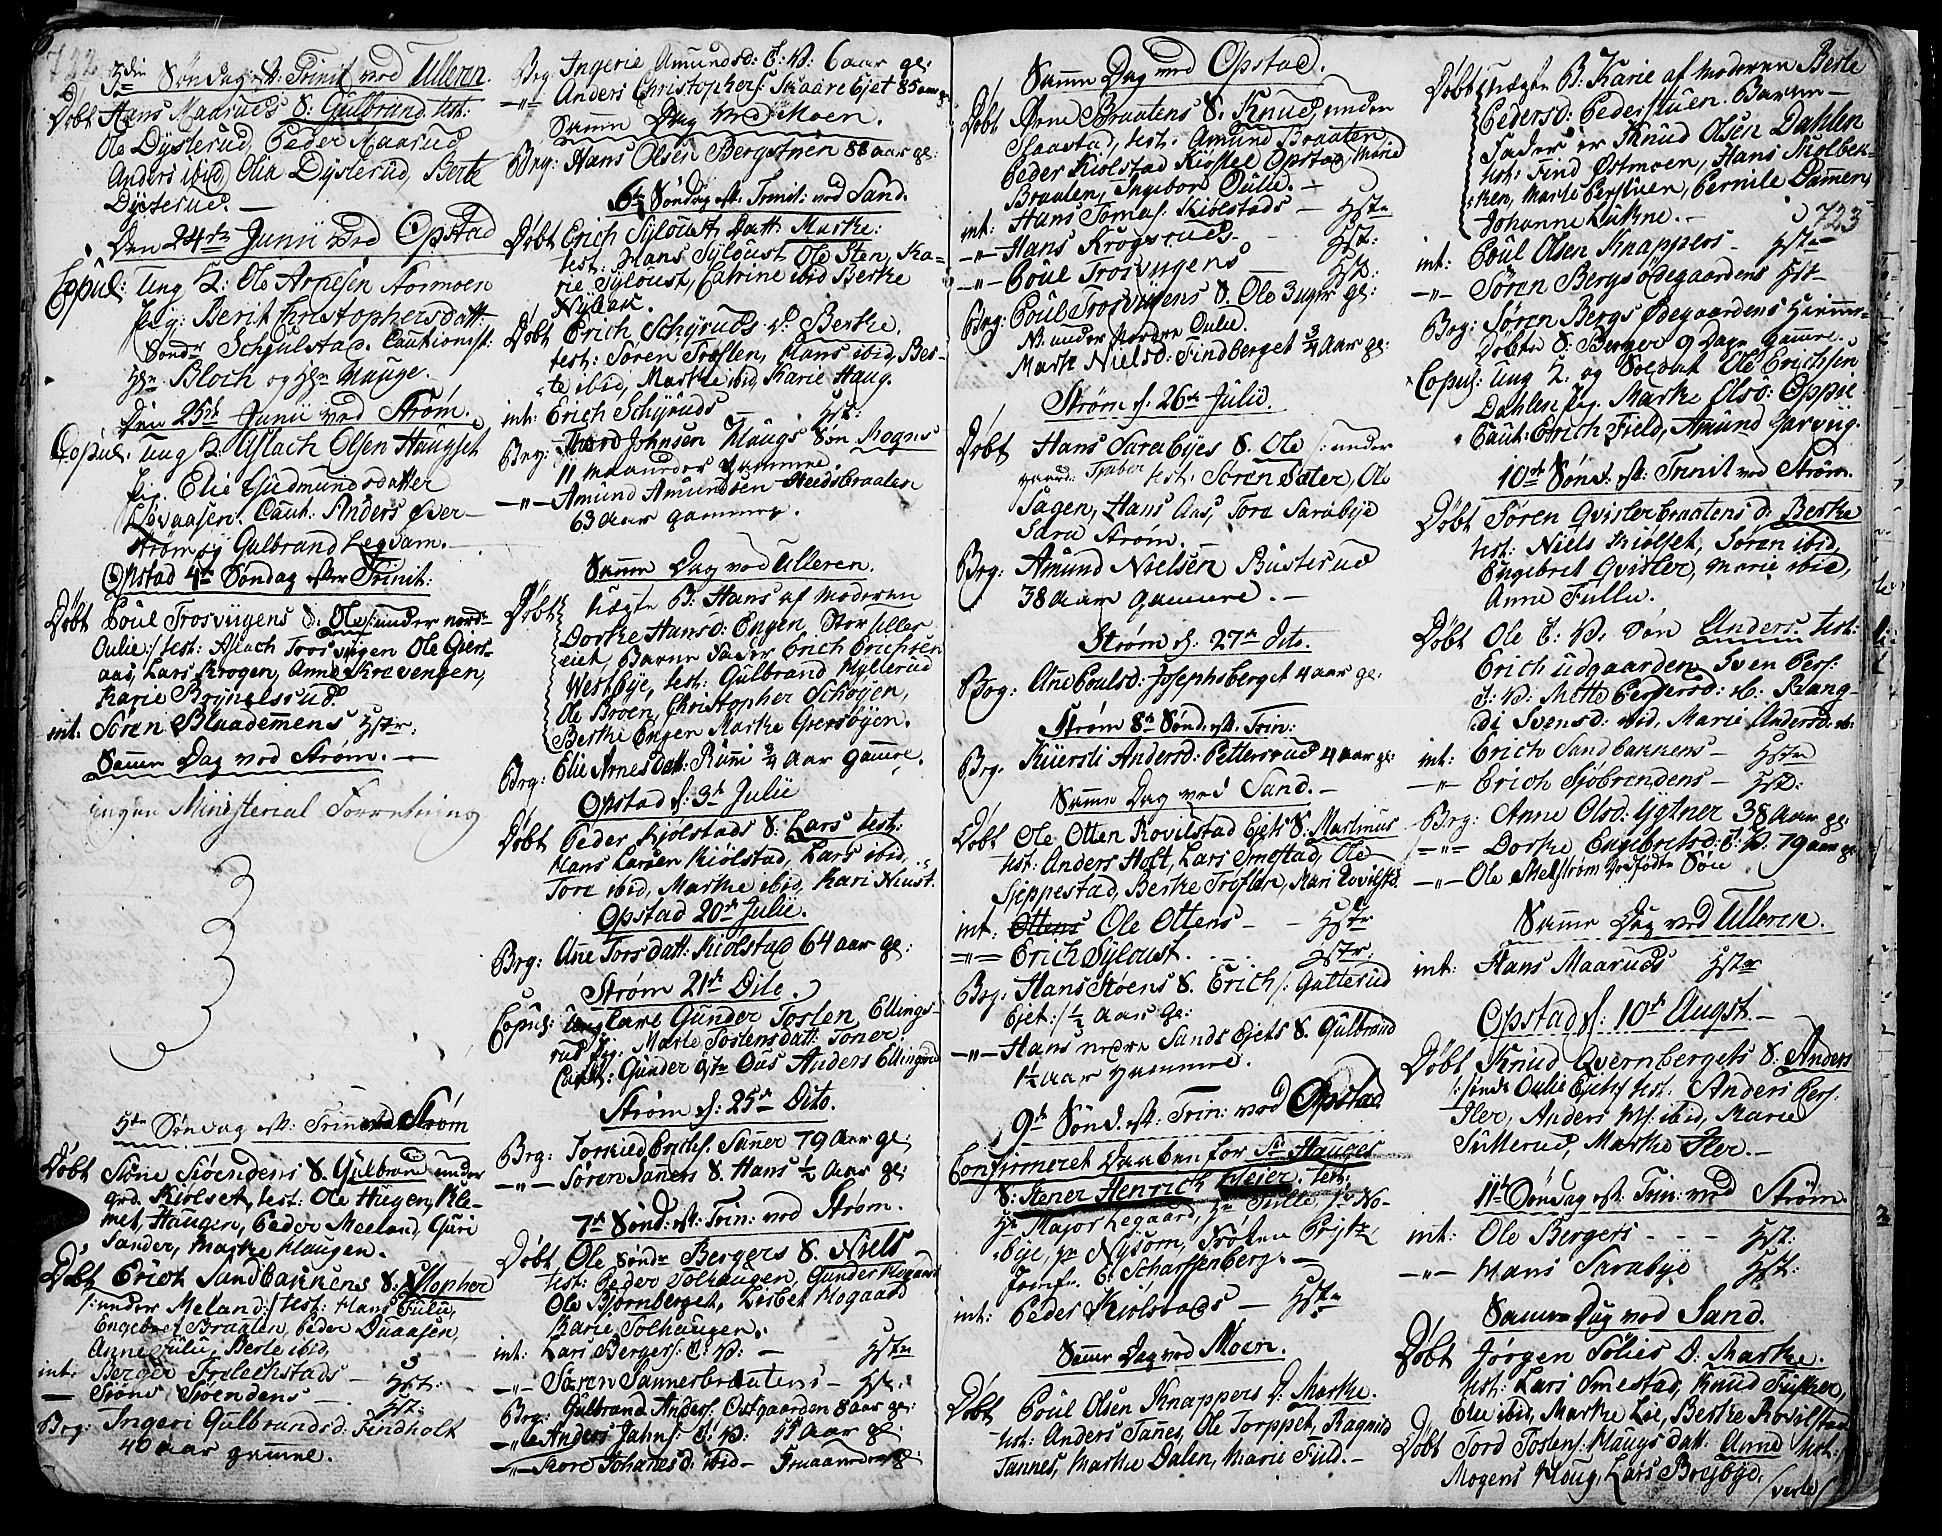 722
3die Søndag eft. Trinit. ved Ulleren.
Døbt Hans Maaruds S. Gulbrand. test:
Ole Dysterud, Peder Maarud
Anders ibid, Olia Dysterud, Berte
Dysterud. —
Den 24de Junii ved Opstad
Copul: Ung K: Ole Arnesen Kormoen
pig: Berit Christophersdatt:
Sondr Schiulstad. Cautionist:
Hr. Bloch og Hr. Hauge.
Den 25de Junii ved Strøm.
Copul: Ung K: Aslach Olsen Haugset
pig. Elie Gudmundsdatter
Løvaasen. Caut: Anders Over-
Strøm og Gulbrand Legdam.
Opstad 4de Søndag efter Trinit:
Døbt Poul Trosvigens S. Ole /: under nord-
Oulie:/ test: Aslach Trosvigen Ole Giers-
aas, Lars Krogen, Anne Kravengen,
Karie Brynelsrud.
int: Søren Blaademens Hstr.
Samme Dag ved Strøm. —
ingen Ministerial Forretning
5te Søndag eft: Trin ved Strøm
Døbt Siøne Siøendens S. Gulbrand under
grd. Kiølset, test: Ole Haugen, Kle-
met, Haugen, Peder Meeland, Guri
Sander, Marthe Haugen.
Døbt Erich Sandbakkens S: Christopher
/: under Meland:/ test: Hans Fulu,
Engebret Braaten, Peder Duaasen,
Anne Fulu, Berte ibid,
int: Berger Froleckstads — Hst:
— Siøns Siøendens — Hst:
Brg: Ingeri Gulbrandsd: Findholt
40 aar gammel.
Brg: Ingerie Amundsd: E: V: 6 aar ge:
—"— Anders Christophers: Skaare Ejet 85 aar g
Samme Dag ved Moen.
Brg: Hans Olsen Bergstuen 88 aar ge:
6te Søndag eft: Trinit: ved Sand.
Døbt Erich Syloust Datt: Marthe:
test: Hans Syloust Ole Sten, Ka-
rie Syloust, Catrine ibid Berthe
Nyback.
Døbt Erich Schyruds d: Berthe.
test: Søren Trøften, Hans ibid, Ber-
te ibid, Marthe ibid, Karie Haug.
int: Erich Schyruds Hst:
Brg: Thord Johnsen Haugs Søn Mogns
11 maaneder gammel
—"— Amund Amundsen Needsbraaten
63 aar gammel.
Samme Dag ved Ulleren.
Døbt Uægte B: Hans af Moderen
Dorthe Hansd: Engen Stor Uller
eiet, Barne Fader Erich Erichsen
Westbye, test: Gulbrand Myllerud
Ole Broen, Christopher Schogen,
Berthe Engen Marthe Giersøyen.
Brg: Elie Arnesdatt: Rumi 3/4 Aar gamel.
Opstad d: 3de Julii
Døbt Peder Kiolstads S: Lars test:
Hans Larsen Kiølstad, Lars ibid,
Tore ibid, Marthe ibid, Kari Niust.
Opstad 20de Julii.
Brg: Ane Torsdatt: Kiølstad 64 aar ge:
Strøm 21de Dito.
Copul: Ung Carl Gunder Tosten Ellings-
rud pig: Marte Tostensdatt: Toner
Caut: Gunder Ous Anders Ellingsrud
Strøm d: 25de Dito.
Brg: Torkild Erichs: Sanner 79 Aar ge:
—"— Søren Sanners S. Hans 1/2 Aar ge:
7de Sønd: eft: Trin: ved Strøm.
Døbt, Ole Søndr Bergers S. Niels
test: Peder Tolhaugen, Gunder Mogaard
Ole Biørnberget, Lisbet Mogaard
Karie Tolhaugen.
int: Lars Bergers: E: V: — Hstr
—"— Søren Sannerbraatens — Hst:
Brg: Gulbrand Anders: Ostgaarden 8 aar ge:
—"— Anders Jahns: E: V: 11 Aar g:
—"— Tore Johanesd: ibid
Samme Dag ved Opstad.
Døbt Arne Braatens S. Knud, under
Slaastad, test: Amund Braaten,
Peder Kiolstad Kirstel Opstad, Marie
Braaten, Ingebor Oulie. —
int: Hans Tomas: Kiolstads — Hstr
—"— Hans Krogsruds — Hst:
—"— Poul Trosvigens — Hst:
Brg: Poul Trosvigens S. Ole 3 uger ge:
N: under Nordre Oulie.
Marte Nielsd: Findberget 3/4 Aar ge:
Strøm d. 26de Julii.
Døbt Hans Sarabyes S. Ole /: under
gaard: test: Søren Sæter, Ole
Sagen, Hans Aas, Tore Sarabye
Sara Strøm. —
Brg: Amund Nielsen Busterud
38 aar gammel. —
Strøm d. 27de dito.
Brg: Ane Poulsd: Josephsberget 4 aar ge:
Strøm 8de Sønd: eft: Trin:
Brg. Kiiersti Andersd: Pettersrud 4 aar ge:
Samme Dag ved Sand. —
Døbt Ole Otten Rovilstad Ejets S: Martinus
test: Anders Holt, Lars Smestad, Ole
Sieppestad, Berthe Trøften, Mari Rovilstd.
int: Ottens Ole Ottens — Hstr
—"— Erich Syloust. Hstr.
Brg: Hans Støens S. Erich /: Gutterud
Ejet:/ 1/2 Aar ge:
—"— Hans nedre Sands Ejets S. Gulbrand
1 1/2 Aar gammel.
9de Sønd. eft: Trin: ved Opstad
Confirmeret Daaben for Sr. Hauges
S: Stener Henrich Meier. test:
Hr Major Legaard, Hr Tulle, Jr No-
bye, jr Nysom, Frøken Prytz
Jomfr. E: Scharffenberg. —
int: Peder Kiolstads — Hstr
Samme Dag ved Moen.
Døbt Poul Olsen Knappers D. Marthe.
test: Anders Tanes, Ole Torppet, Ragnild
Tannes, Marthe Dalen, Marie Fiud. —
Døbt Uægte B: Karie af Moderen Berte
Pedersd: Pederstuen. Barne —
Fader er Knud Olsen Dahlen
test: Find Østmoen, Hans Skolbek-
ken, Marte Persveen, Pernile Dammen,
Johanne Lukne. —
723
int: Poul Olsen Knappers — Hstr
—"— Søren Bergs Ødegaardens Hst
Brg: Søren Bergs Ødegaardens Hiemme-
Døbte S: Berger 9 Dage gamel.
Copul: Ung K. og Soldat Ole Erichsen
Dahlen pig. Marthe Elsd: Oppie
Caut: Erich Field, Amund Garvig.
10de Sønd: eft: Trinit ved Strøm.
Døbt Søren Qvisterbraatens D. Berthe
test: Niels Kiølset, Søren ibid,
Engebret Qvister, Marie ibid,
Anne Fullu.
Døbt Ole E: V: Søn Anders test:
Erich Udgaarden, Sven Pers:
E: V: Mette Pedersd: ib: Rang-
di Svensd: ibid, Marie Andersd: ib:
int: Erich Sandbakkens — Hstr
—"— Erich Siøbrendens — Hst:
Brg: Anne Olsd: Ygtner 38 Aar ge:
—"— Dorthe Engebretsd: E: V: 79 aar ge
—"— Ole Melstrøm dødfødte Søn
Samme Dag ved Ulleren.
int: Hans Maaruds Hstr
Opstad d: 10de Augst. —
Døbt Knud Qvernbergets S: Anders
/: sondr Oulie Ejet:/ test: Anders Pers:
Iler, Anders Ms: ibid, Marie
Sullerud, Marthe Iler. —
11te Søndag eft: Trin: ved Strøm.
int: Ole Bergers - - - Hst:
—"— Hans Sarabye Hst:
Samme Dag ved Sand.
Døbt Jørgen Solies D: Marthe.
test: Lars Smestad, Knud Fusker,
Elie ibid, Marthe Lie, Berthe Rovilstad
Døbt Tord Tostens: Haugs datt: Anne test:
Mogens Houg, Lars Breybye,
(verte)